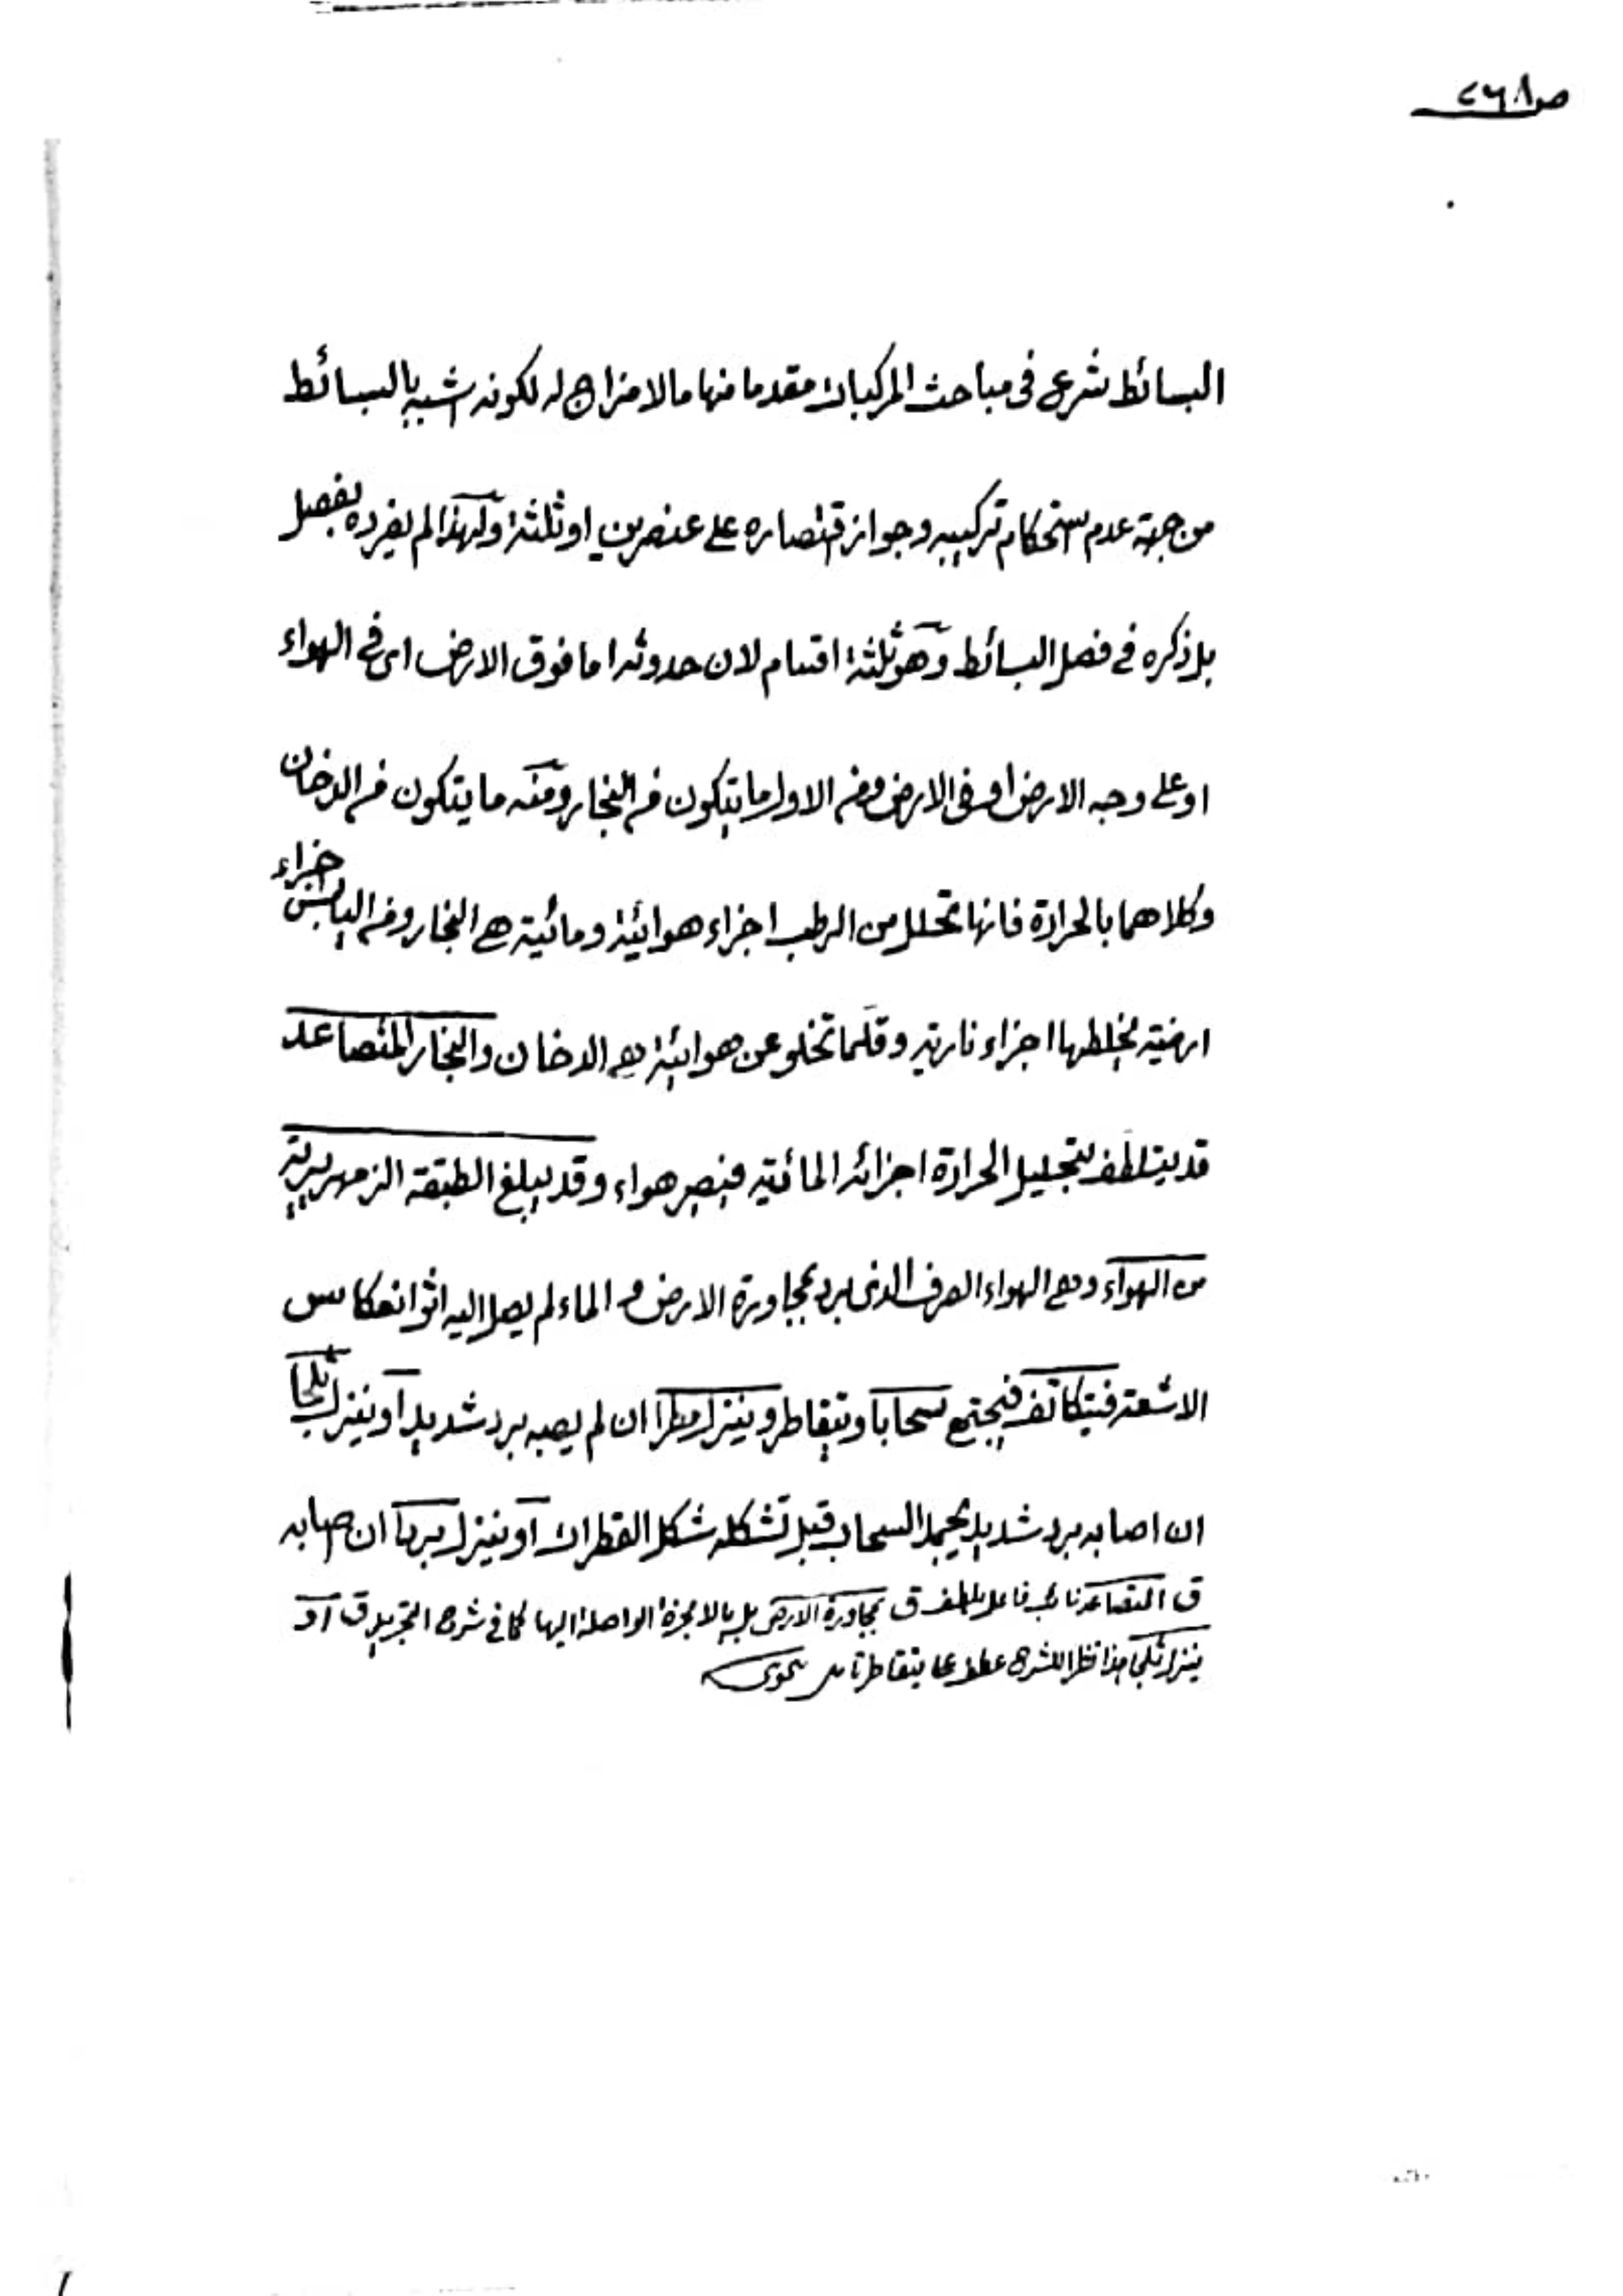 ص٢٦٨
البسائط شرع فى مباحث المركبات مقدما منها مالا مزاج له لكونه شبيه بالبسائط
من جهة عدم ستحكام تركيبه وجواز قتصاره على عنصرين او ثلثة ولهذا لم يفرده بفصل
بل ذكره فى فصل البسائط وهو ثلثة اقسام لان حدوثه اما فوق الارض اى فى الهواء
او على وجه الارض او فى الارض وفمن الاول ما يتكون من البخار ومنه ما يتكون من الدخان
وكلاهما بالحرارة فانها تحلل من الرطب اجزاء هوائية ومائية هى البخار ومن اليابس اجزاء
ارضية يخلطها اجزاء نارية وقلما تخلو عن هوائية هى الدخان والبخار المتصاعد
قد يتلطف بتحليل الحرارة اجزائه المائية فيصير هواء وقد يبلغ الطبقة الزمهريرية
من الهواء وهى الهواء الصرف الذى برد بمجاورة الارض والماء لم يصل اليه اثر انعكاس
الاشعة فيتكاثف فيجتمع سحابا ويتقاطر وينزل مطرا ان لم يصبه برد شديد او ينزل ثلجا
ان اصابه برد شديد يجمد السحاب قبل تشكله شكل القطرات او ينزل بردا ان صابه
ق المتصاعد نائب فاعل يلطف ق بمجاورة الارض بل بالابخرة الواصلة اليها كما فى شرح التجريد ق او
ينزل ثلجا هذا نظرا للشرح عطف على يتقاطر تأمل